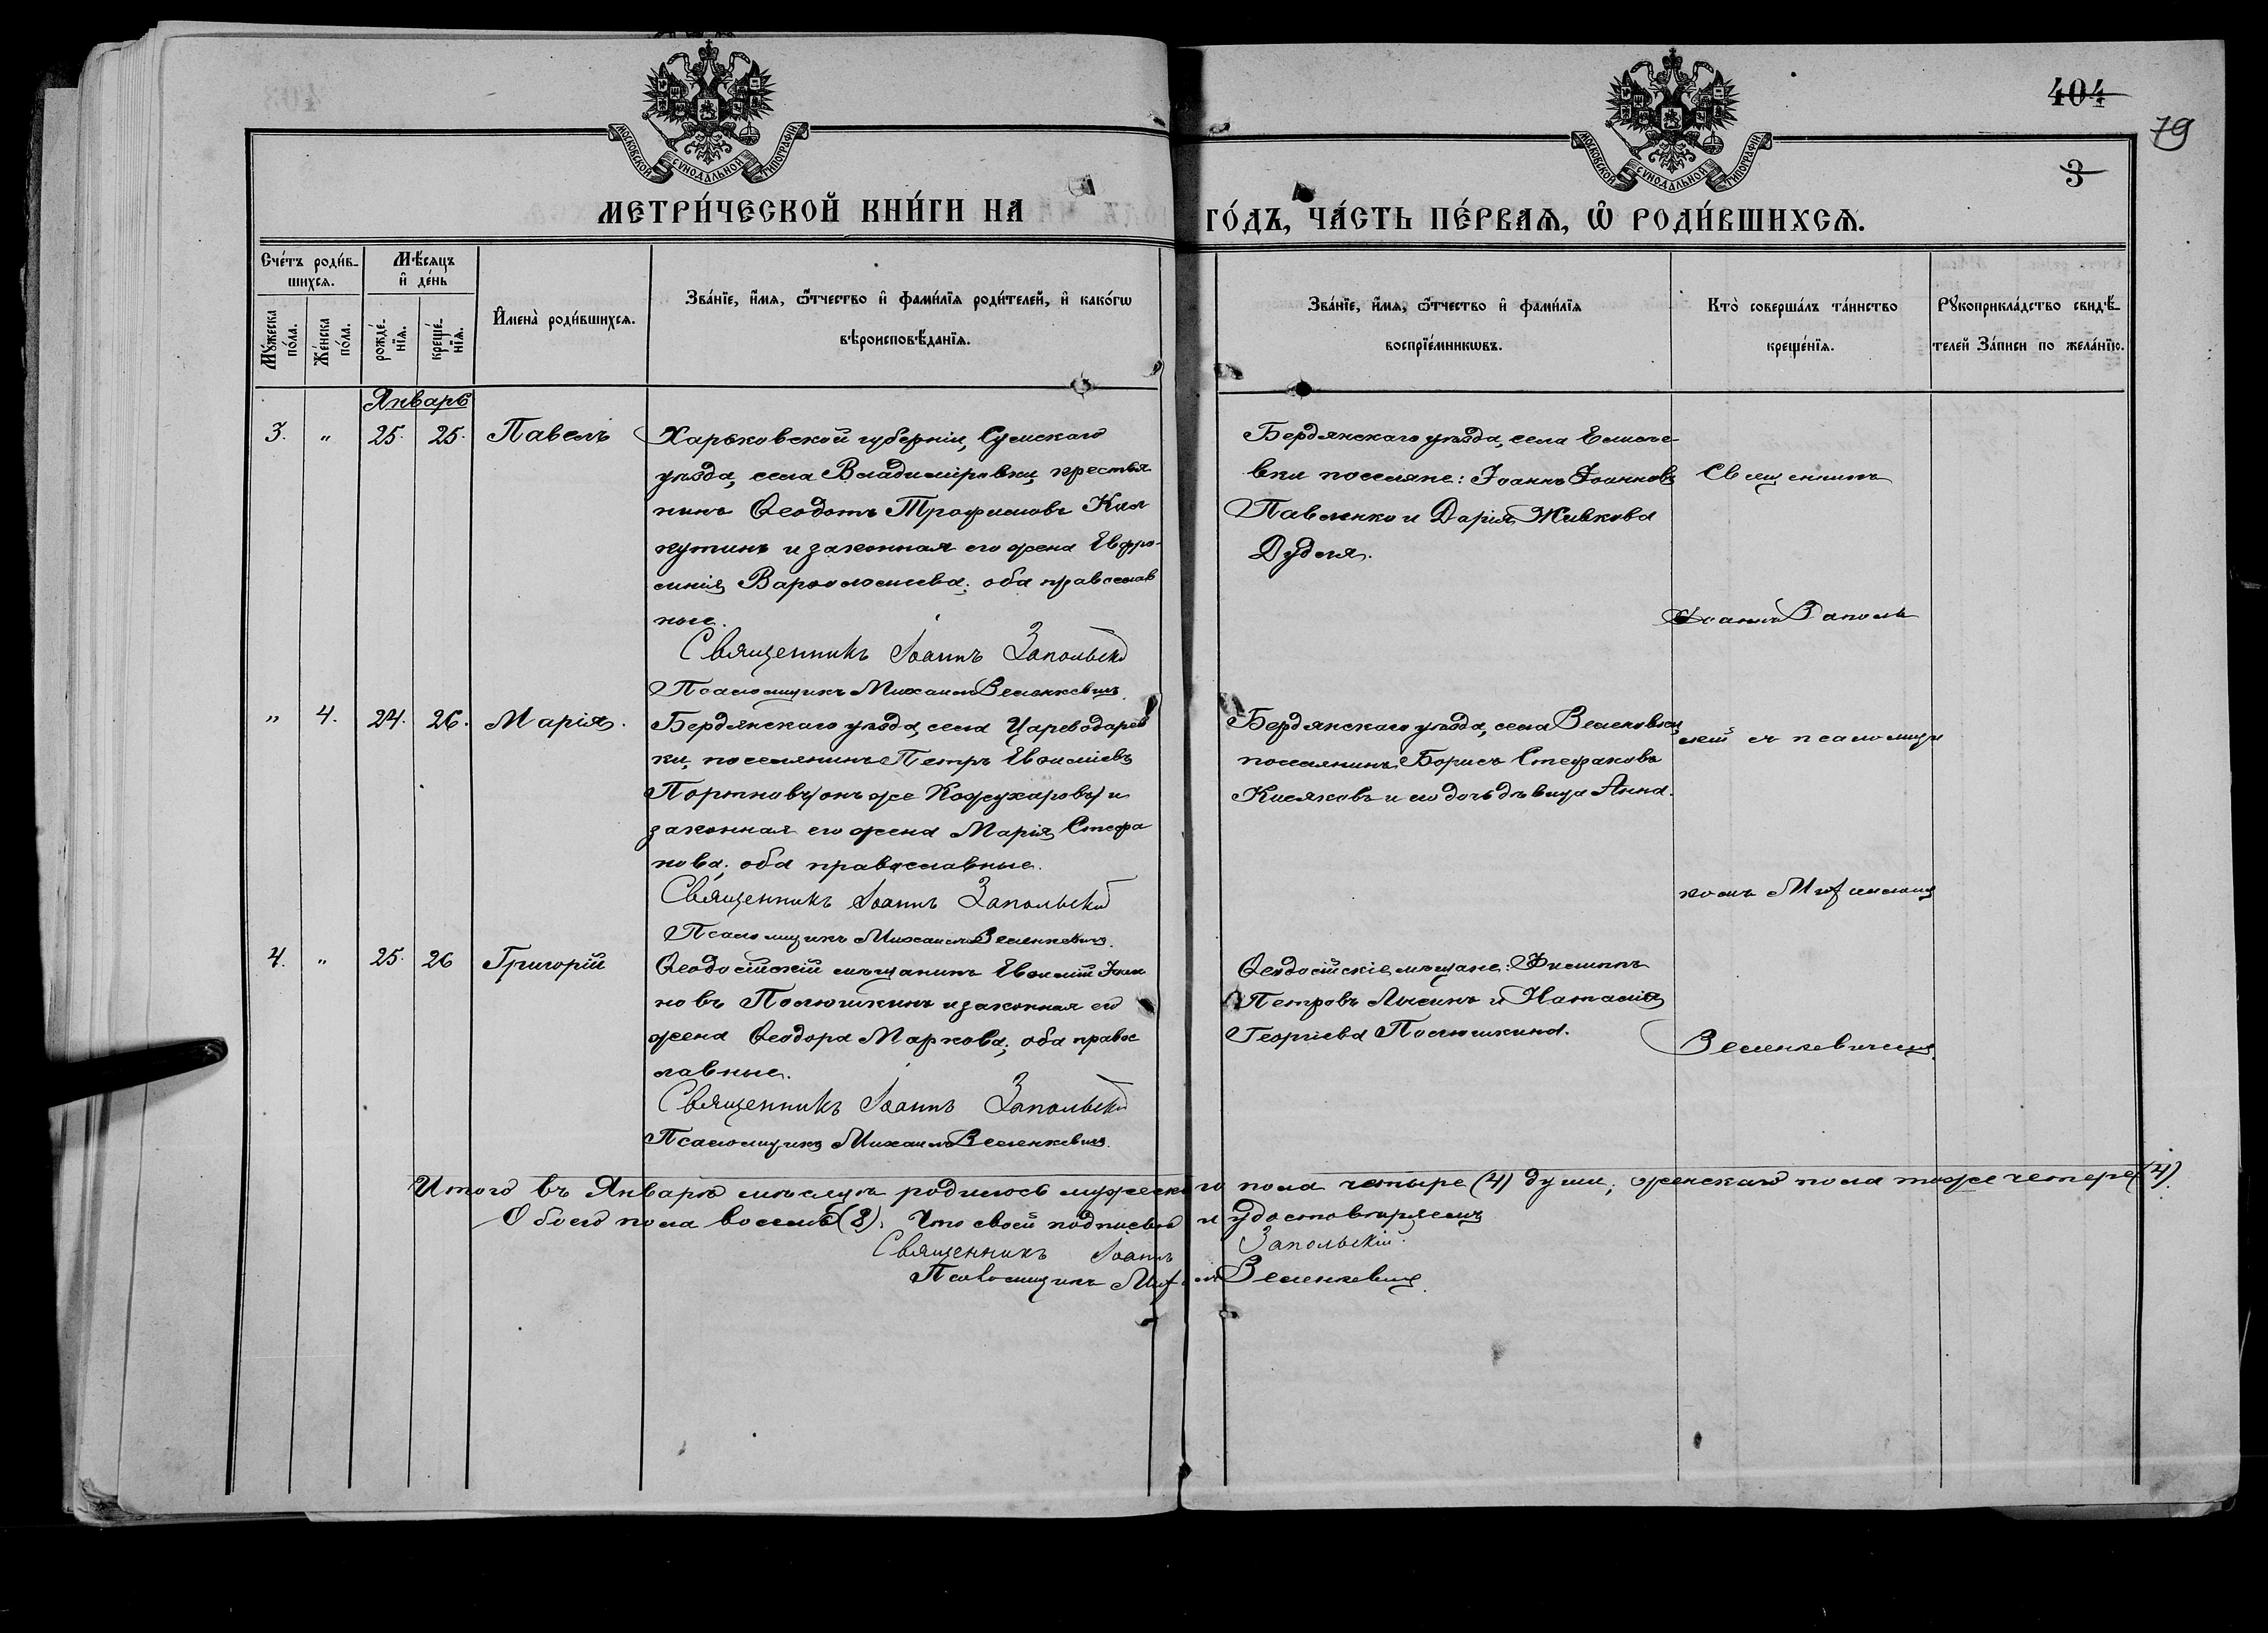 404
79
3
МОСКОВСКОЙ СѴНОДАЛЬНОЙ ТИПОГРАФІИ
МОСКОВСКОЙ СѴНОДАЛЬНОЙ ТИПОГРАФІИ
МЕТРИ́ЧЕСКОЙ КНИ́ГИ НА ГО́ДЪ, ЧА́СТЬ ПЕ́РВАѦ, Ѡ҆ РОДИ́ВШИХСѦ.
Сче́тъ роди́в-
шихсѧ.
Мꙋ́жеска
по́ла.
Же́нска
по́ла.
Мѣ́сѧцъ
и҆ де́нь
рожде́-
нїѧ.
креще́-
нїѧ.
И҆мена̀ роди́вшихсѧ.
Зва́нїе, и҆́мѧ, ѻ҆́тчество и҆ фами́лїѧ роди́телей, и҆ како́гѡ
вѣроисповѣ́данїѧ.
Зва́нїе, и҆́мѧ, ѻ҆́тчество и҆ фами́лїѧ
воспрїе́мникѡвъ.
Кто̀ соверша́лъ та́инство
креще́нїѧ.
Рꙋкоприкла́дство свидѣ́-
телей За́писи по жела́нїю.
Январь
3. " 25. 25. Павелъ
Харьковской губерніи, Сумскаго
уѣзда, села Владиміровки, крестья
нинъ Ѳеодотъ Трофимовъ
и законная его жена Евфро-
синія Варѳоломеева; оба православ
ные.
Священникъ Іоаннъ Запольскій
Псаломщикъ Михаилъ Веленкевичъ.
Бердянскаго уѣзда, села
вки поселяне: Іоаннъ Іоанновъ
Павленко и Дарія Живкова
Дудова.
Священникъ
Іоаннъ Заполь
" 4. 24. 26. Марія.
Бердянскаго уѣзда, села Цареводаров
ки, поселянинъ Петръ Евѳиміевъ
Портновъ (онъ же Кожухаровъ) и
законная его жена Марія Стефа
нова; оба православные.
Священникъ Іоаннъ Запольскій
Псаломщикъ Михаилъ Веленкевичъ.
Бердянскаго уѣзда, села
поселянинъ Борисъ Стефановъ
Кисяковъ и его дочь дѣвица Анна.
скій съ псаломщи
комъ Михаиломъ
4. " 25. 26 Григорій
Ѳеодосійскій мѣщанинъ Евѳимій Іоан
новъ Полюшкинъ и законная его
жена Ѳеодора Маркова; оба правос
лавные.
Священникъ Іоаннъ Запольскій
Псаломщикъ Михаилъ Веленкевичъ.
Ѳеодосійскіе мѣщане: Филиппъ
Петровъ Лысинъ и Наталія
Георгіева Полюшкина.
Веленкевичемъ.
Итого въ Январѣ мѣсяцѣ родилось мужескаго пола четыре (4) души; женскаго пола тоже четыре (4).
Обоего пола восемь (8). Что своей подписью и удостовѣряемъ
Священникъ Іоаннъ Запольскій.
Псаломщикъ Михаилъ Веленкевичъ.